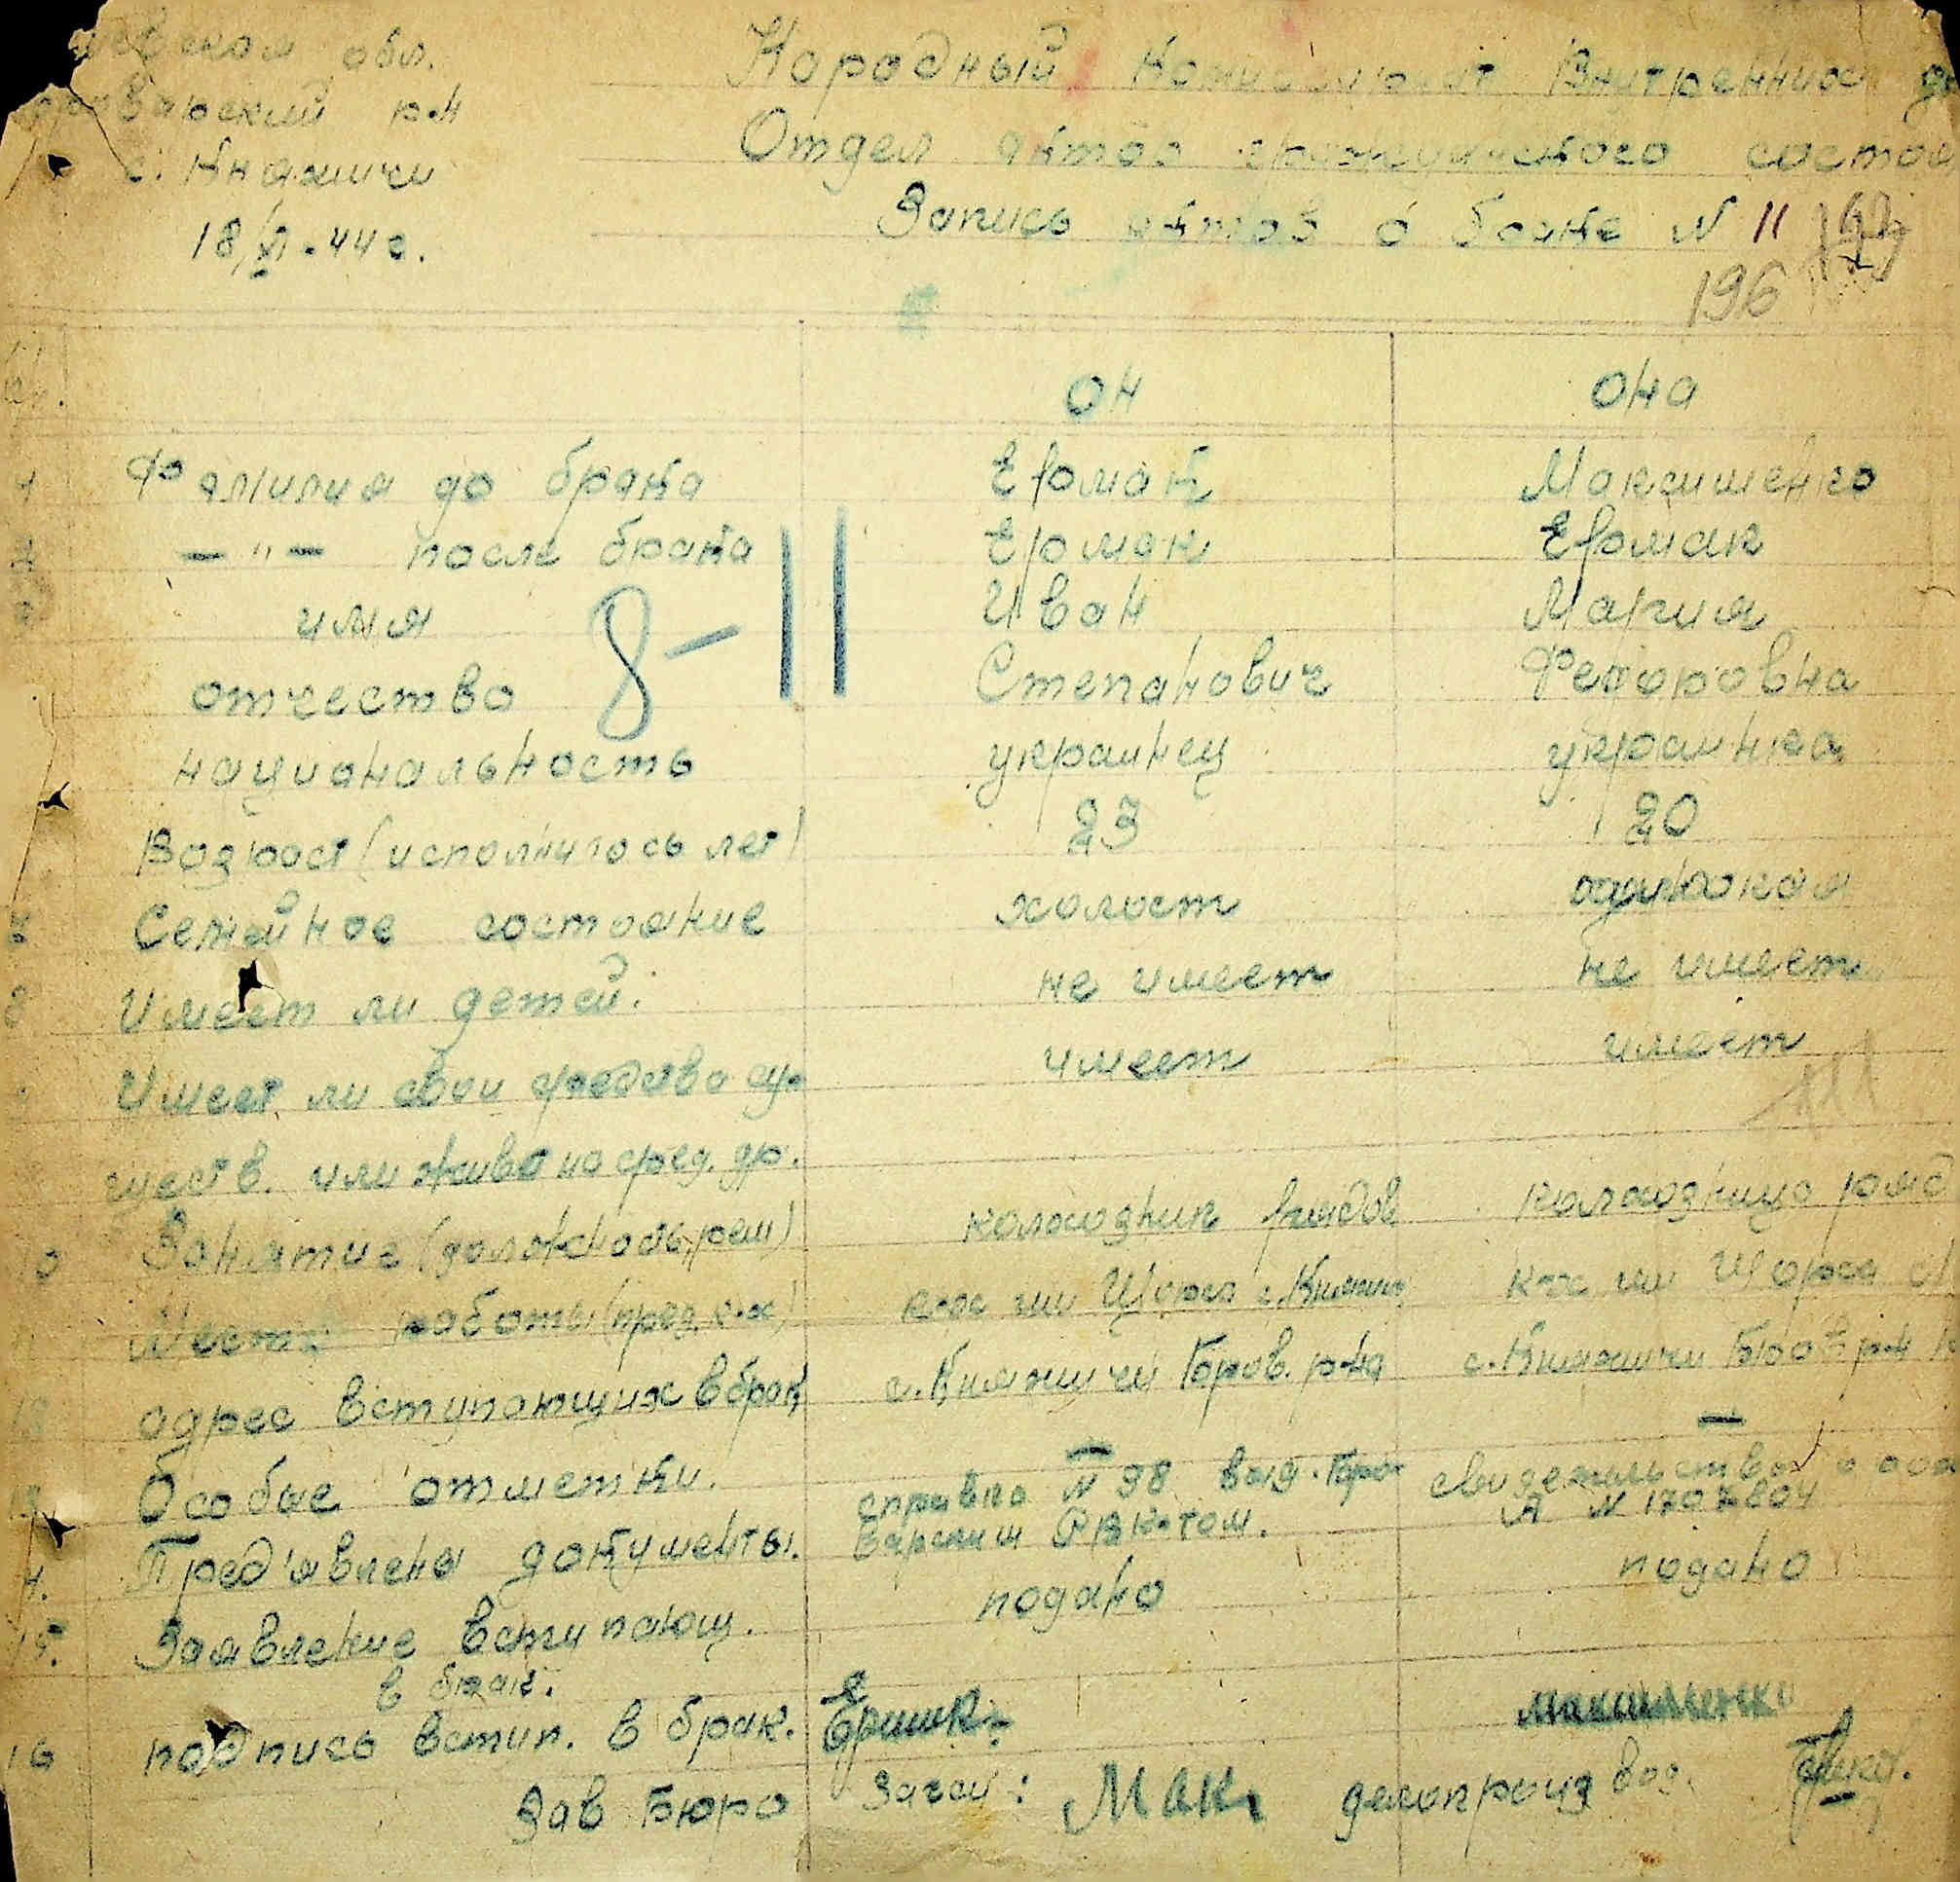 обл.
р-н
с. Княжичи
18/VI.44 г.
Народный Комиссариат Внутренних
Отдел актов гражданского состоя
Запись актов о браке N 11
196
он она
1 Фамилия до брака Ермак Максименко
— " — после брака Ермак Ермак
имя Иван Мария
отчество Степанович Федоровна
8-11
национальность украинец украинка
Возраст (исполнилось лет) 23 20
Семейное состояние холост одинокая
8 Имеет ли детей. не имеет не имеет
Имеет ли свои средства су- имеет имеет
111
ществ. или жив на сред. др.
10 Занятие (должность, рем) колхозник рядов колхозница ряд
Место работы (пред. к-х) к-х им Щорса с. Княжич к-х им Щорса
адрес вступающих в брак с. Княжичи р-на с. Княжичи р-н
Особые отметки. — —
справка N 98 выд. свидетельство о
14. Пред'явлены документы. РВК-том. А N 1707804
15. Заявление вступающ. подано подано
в брак.
16 подпись вступ. в брак. Максименко
Зав Бюро Загса: Мак делопроизвод.